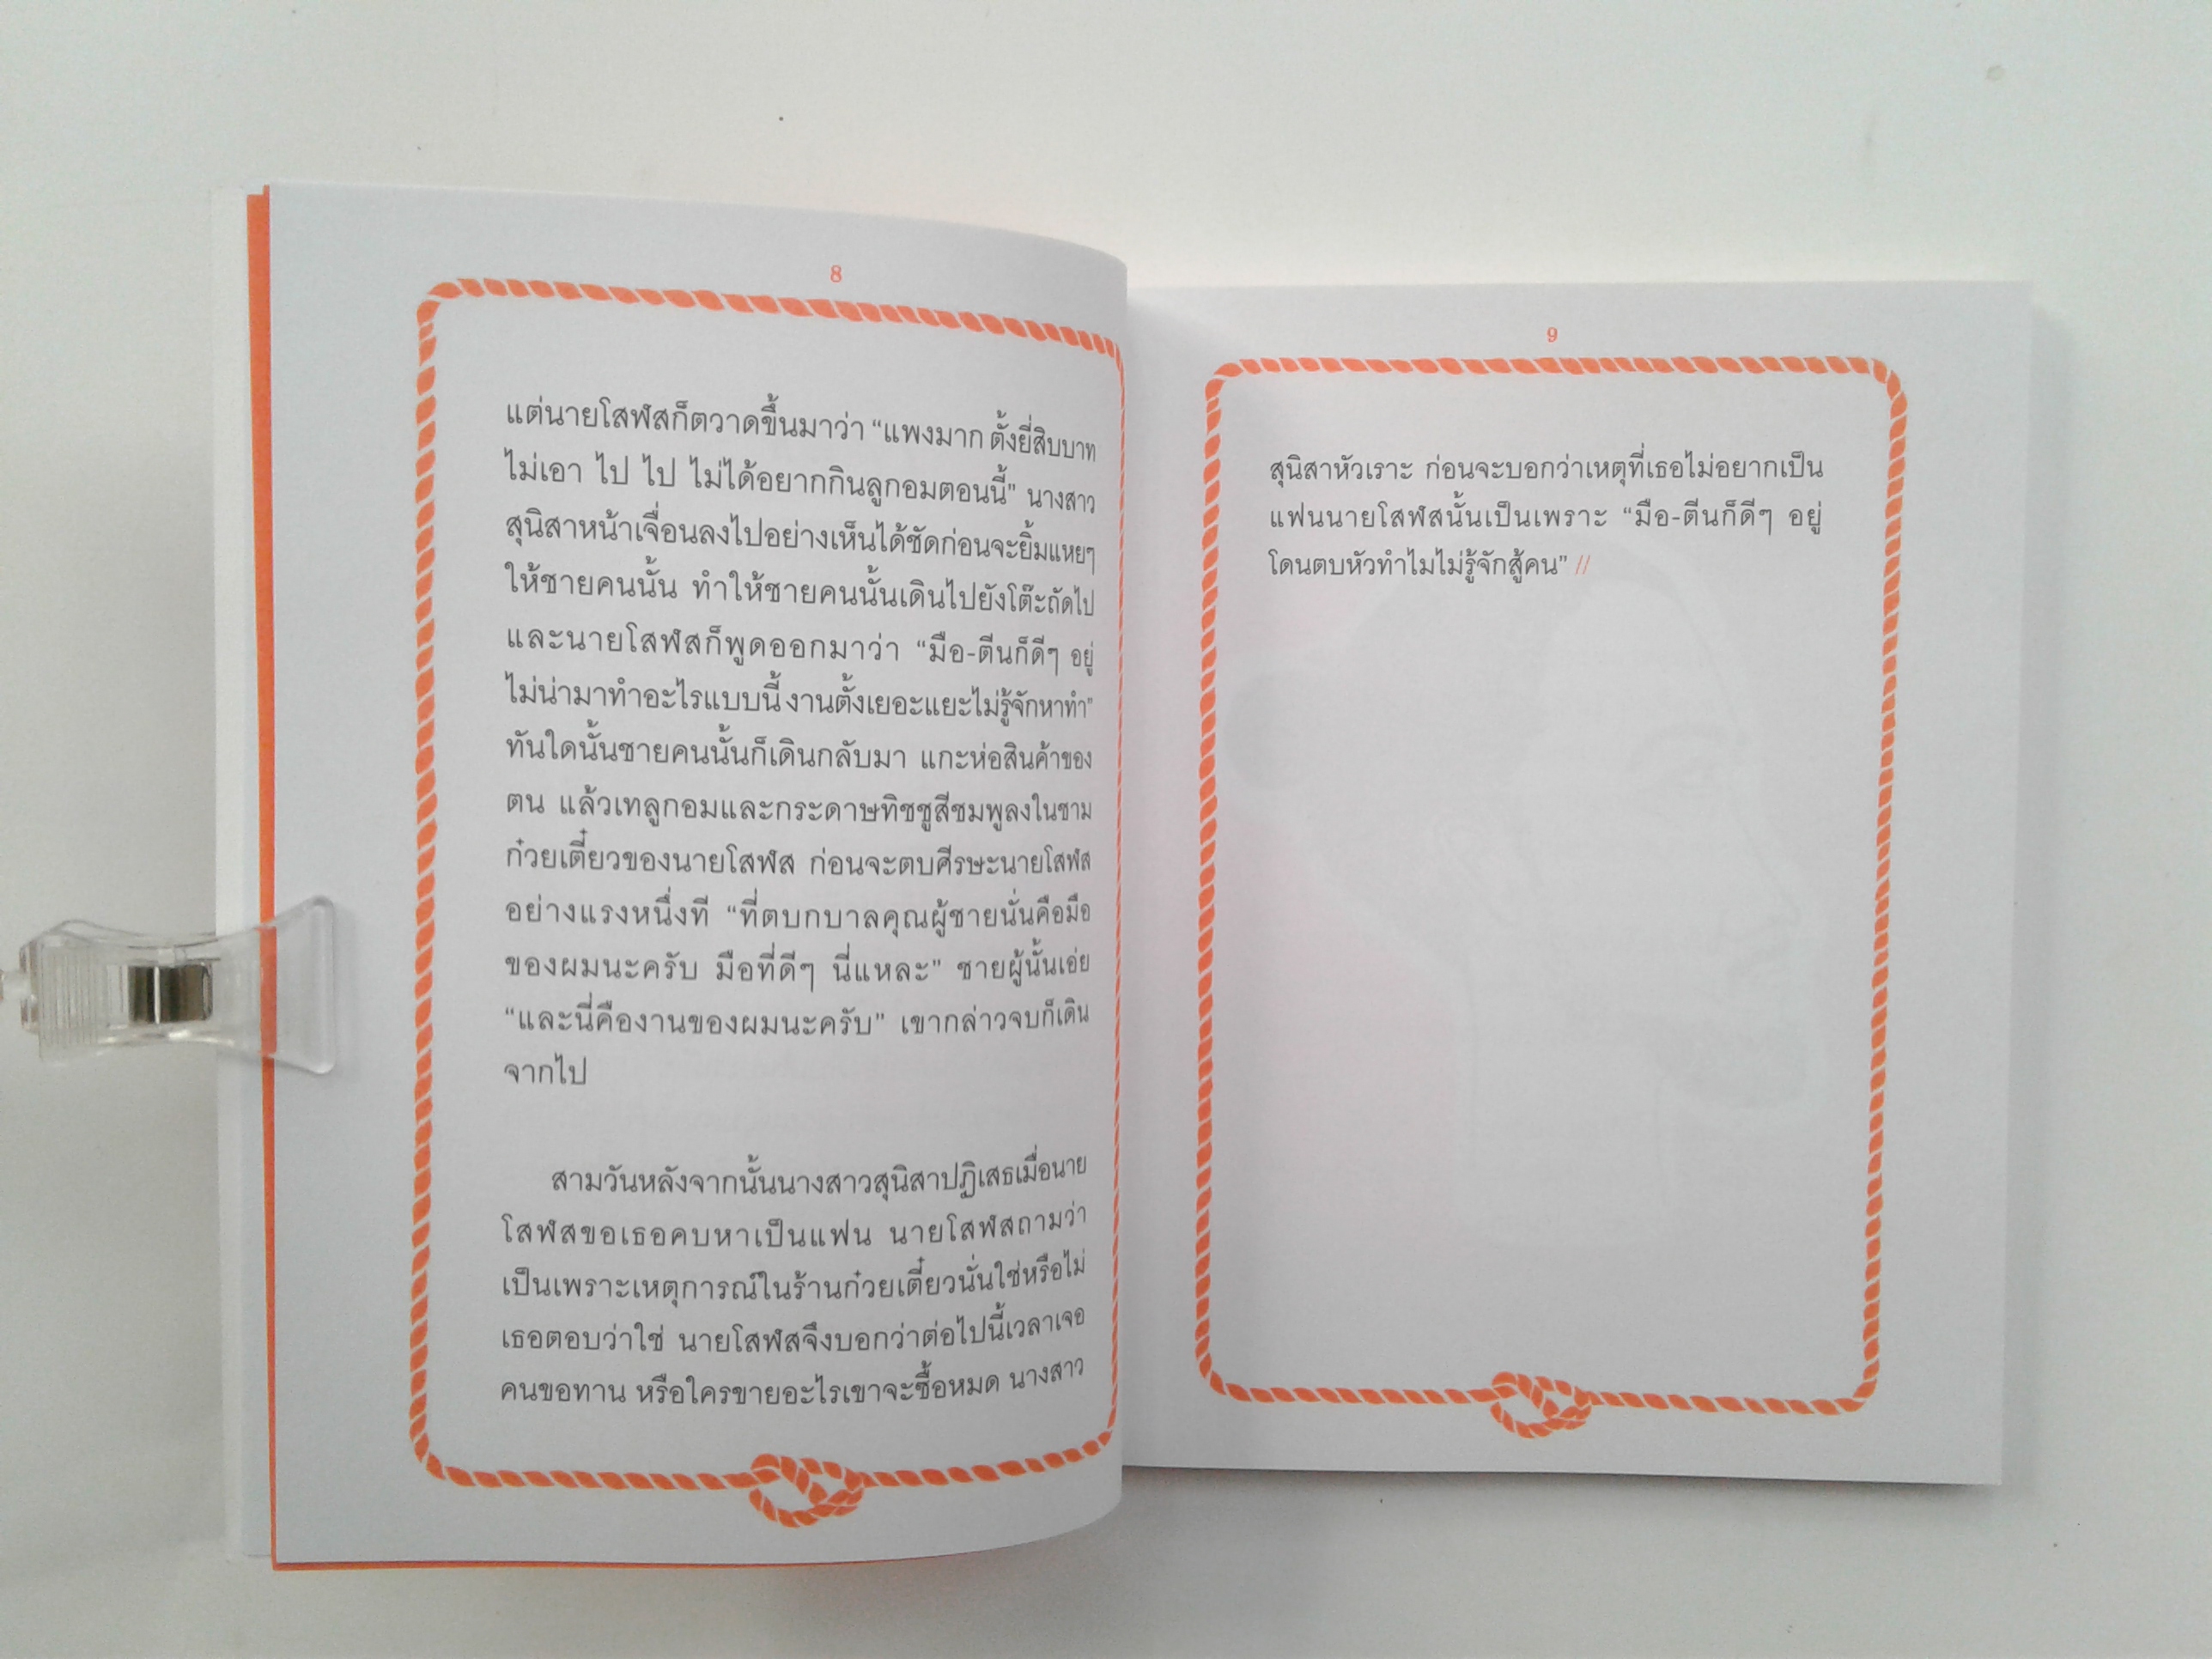 8
แต่นายโสฬสก็ตวาดขึ้นมาว่า “แพงมาก ตั้งยี่สิบบาท
ไม่เอา ไป ไป ไม่ได้อยากกินลูกอมตอนนี้” นางสาว
สุนิสาหน้าเจื่อนลงไปอย่างเห็นได้ชัดก่อนจะยิ้มแหยๆ
ให้ชายคนนั้น ทำให้ชายคนนั้นเดินไปยังโต๊ะถัดไป
และนายโสฬสก็พูดออกมาว่า “มือ-ตีนก็ดีๆ อยู่
ไม่น่ามาทำอะไรแบบนี้ งานตั้งเยอะแยะไม่รู้จักหาทำ”
ทันใดนั้นชายคนนั้นก็เดินกลับมา แกะห่อสินค้าของ
ตน แล้วเทลูกอมและกระดาษทิชชูสีชมพูลงในชาม
ก๋วยเตี๋ยวของนายโสฬส ก่อนจะตบศีรษะนายโสฬส
อย่างแรงหนึ่งที “ที่ตบกบาลคุณผู้ชายนั่นคือมือ
ของผมนะครับ มือที่ดีๆ นี่แหละ” ชายผู้นั้นเอ่ย
“และนี่คืองานของผมนะครับ” เขากล่าวจบก็เดิน
จากไป
สามวันหลังจากนั้นนางสาวสุนิสาปฏิเสธเมื่อนาย
โสฬสขอเธอคบหาเป็นแฟน นายโสฬสถามว่า
เป็นเพราะเหตุการณ์ในร้านก๋วยเตี๋ยวนั่นใช่หรือไม่
เธอตอบว่าใช่ นายโสฬสจึงบอกว่าต่อไปนี้เวลาเจอ
คนขอทาน หรือใครขายอะไรเขาจะซื้อหมด นางสาว
9
สุนิสาหัวเราะ ก่อนจะบอกว่าเหตุที่เธอไม่อยากเป็น
แฟนนายโสฬสนั้นเป็นเพราะ “มือ-ตีนก็ดีๆ อยู่
โดนตบหัวทำไมไม่รู้จักสู้คน” //